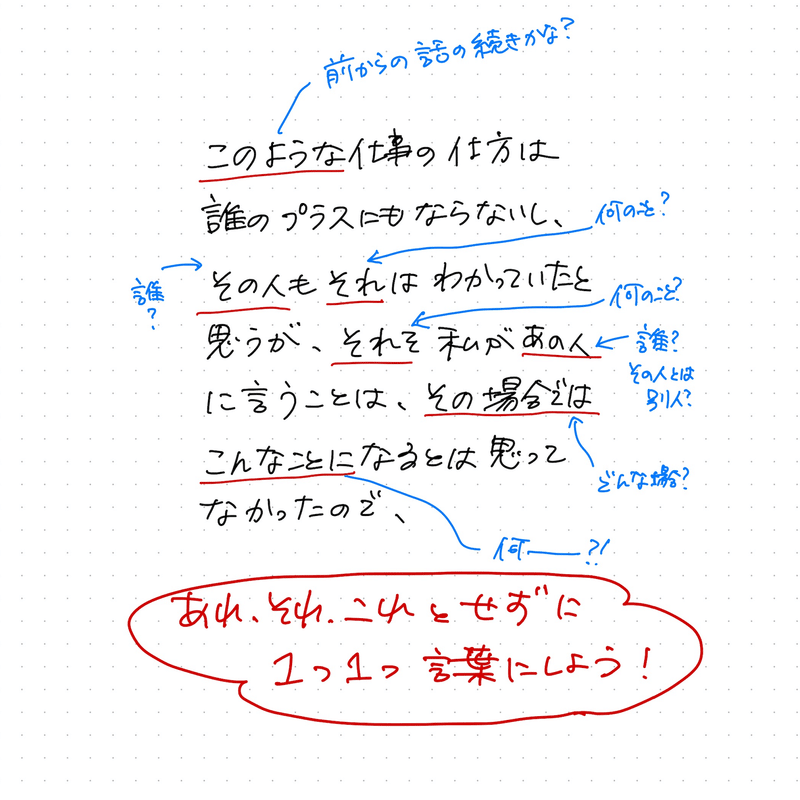 前からの話の続きかな?
このような仕事の仕方は
誰のプラスにもならないし、
何のこと?
誰?
その人もそれはわかっていたと
何のこと?
思うが、それを私があの人
誰?
その人とは
別人?
に言うことは、その場合では
どんな場合?
こんなことになるとは思って
なかったので、
何――?!
あれ、それ、これとせずに
1つ1つ言葉にしよう!